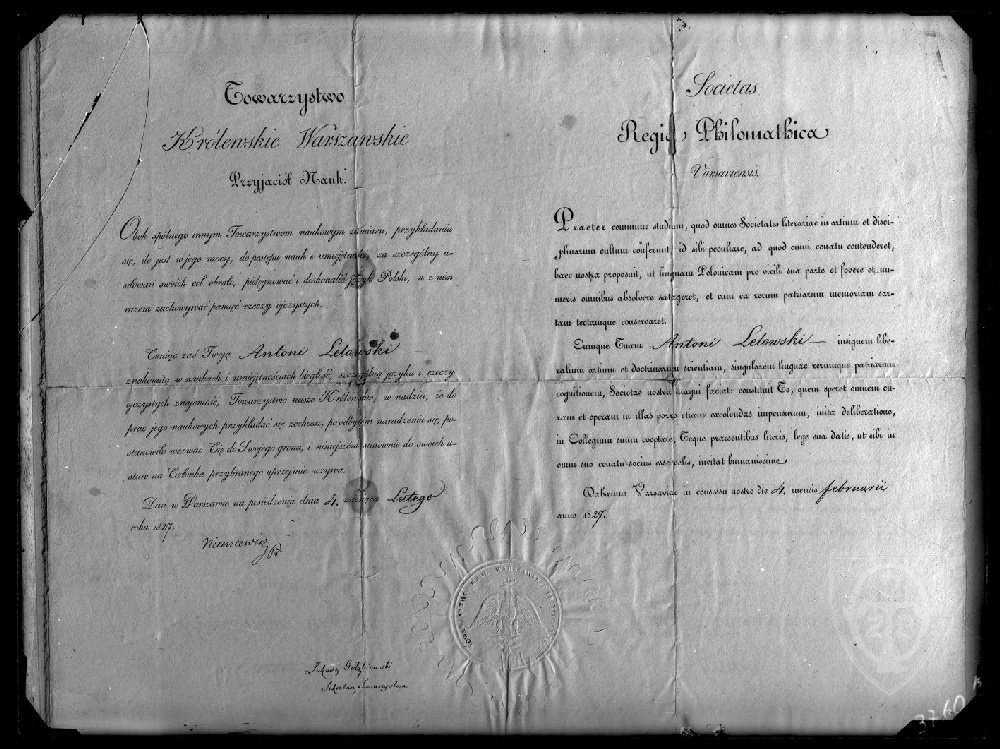 Towarzystwo
Królewskie Warszawskie
Przyjaciół Nauk.
Obok spólnego innym Towarzystwom naukowym zamiaru, przykładania
się, ile jest w jego mocy, do postępu nauk i umiejętności, za szczególny u-
siłowań swoich cel obrało, pielęgnować i doskonalić język Polski, a z nim
razem zachowywać pamięć rzeczy ojczystych.
Ceniąc zaś Twoją Antoni Letowski
znakomitą w naukach i umiejętnościach biegłość, szczególną języka i rzeczy
ojczystych znajomość, Towarzystwo nasze Królewskie, w nadziei, że do
prac jego naukowych przykładać się zechcesz, po odbytem naradzeniu się, po-
stanowiło wezwać Cię do Swojego grona, i niniejszem stosownie do swoich u-
staw na Członka przybranego uprzejmie wzywa.
Dan w Warszawie na posiedzeniu dnia 4. miesiąca Lutego
roku 1827.
Niemcewicz
Sekretarz Towarzystwa
Societas
Regia Philomathica
Varsaviensis.
Praeter commune studium, quod omnes Societates literariae in artium et disci-
plinarum cultum conferunt, id sibi peculiare, ad quod omni conatu contenderet,
haec nostra proposuit, ut linguam Polonicam pro virili sua parte et fovere et nu-
meris omnibus absolvere satageret, et una ea rerum patriarum memoriam sar-
tam tectamque conservaret.
Eumque Tuam Antoni Letowski insignem libe-
ralium artium et doctrinarum scientiam, singularem linguae rerumque patriarum
cognitionem, Societas nostra magni faciens constituit Te, quem sperat omnem cu-
ram et operam in illas poros etiam excolendas impensurum, inita deliberatione,
in Collegium suum cooptare, Teque praesentibus literis, lege sua datis, ut sibi in
omni suo conatu socius esse velis, invitat humanissime.
Dabamus Varsaviae in consessu nostro die 4. mensis februarii
anno 1827.
3760